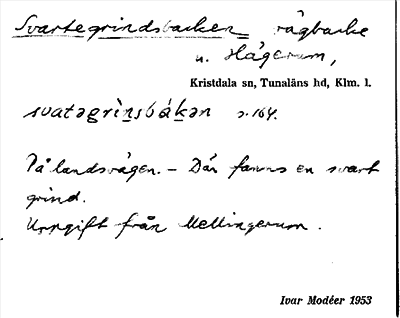 Svartegrindsbacken vägbacke
u. Hägerum,
Kristdala sn, Tunaläns hd, Klm. l.
svatəgrìnsbákən s. 164.
På landsvägen. – Där fanns en svart
grind.
Uppgift från Mellingerum.
Ivar Modéer 1953